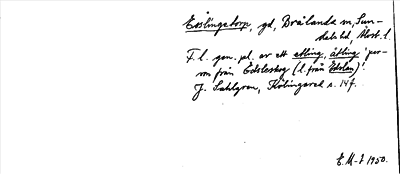 Esslingetorp, gd, Brålanda sn, Sun-
dals hd, Älvsb. l.
F. l. gen. pl. av ett etling, ätling 'per-
son från Edsleskog (l. från Edslan)'.
J. Sahlgren, Hölingarel s. 14 f.
E. M-t 1950.